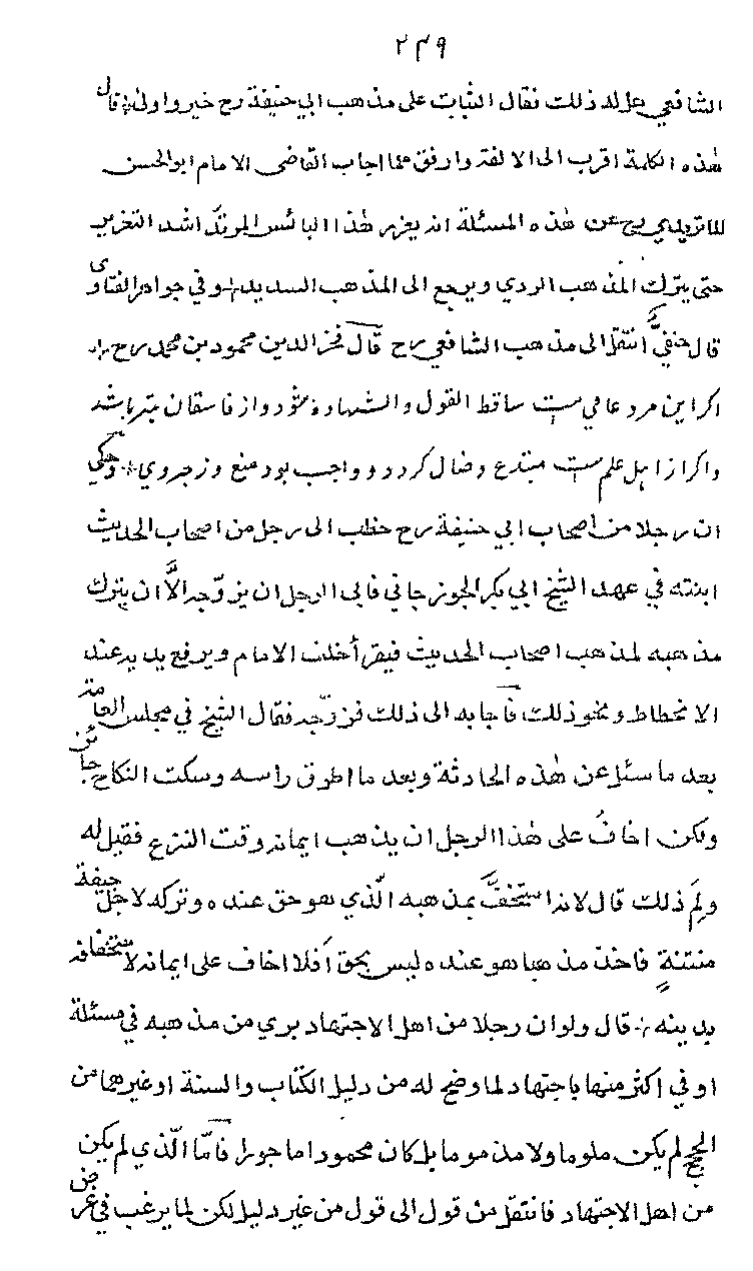 ٢٤٩
الشافعي هل له ذلك فقال الثبات على مذهب ابي حنيفة رح خير واولى قال
هذه الكلمة اقرب الى الالفة وارفق مما اجاب القاضى الامام ابو الحسن
الماتريدي رح عن هذه المسئلة انه يعزر هذا البائس المرتد اشد التعزير
حتى يترك المذهب الردي ويرجع الى المذهب السديد وفي جواهر الفتاوى
قال حنفيٌّ انتقل الى مذهب الشافعي رح قال فخر الدين محمود بن محمد رح
اكر اين مرد عامي ست ساقط القول والشهادة شود واز فاسقان بتر باشد
واكر از اهل علم ست مبتدع وضال كردد و واجب بود منع وزجر وي وحكي
ان رجلا من اصحاب ابي حنيفة رح خطب الى رجل من اصحاب الحديث
ابنته في عهد الشيخ ابي بكر الجوزجاني فابى الرجل ان يزوّجه الّا ان يترك
مذهبه لمذهب اصحاب الحديث فيقرأ خلف الامام ويرفع يديه عند
الانحطاط ونحو ذلك فاجابه الى ذلك فزوّجه فقال الشيخ في مجلس العامة
بعد ما سئل عن هذه الحادثة وبعد ما اطرق راسه وسكت النكاح جائز
ولكن اخافُ على هذا الرجل ان يذهب ايمانه وقت النزع فقيل له
ولِمَ ذلك قال لانه استخفَّ بمذهبه الّذي هو حق عنده وتركه لاجل جيفة
منتنةٍ فاخذ مذهبا هو عنده ليس بحق أفلا اخاف على ايمانه لاستخفافه
بدينه قال ولو ان رجلا من اهل الاجتهاد بري من مذهبه في مسئلة
او في اكثر منها باجتهاد لما وضح له من دليل الكتاب والسنة او غيرهما من
الحجج لم يكن ملوما ولا مذموما بل كان محمودا ماجورا فامّا الّذي لم يكن
من اهل الاجتهاد فانتقل من قول الى قول من غير دليل لكن لما يرغب في غرض